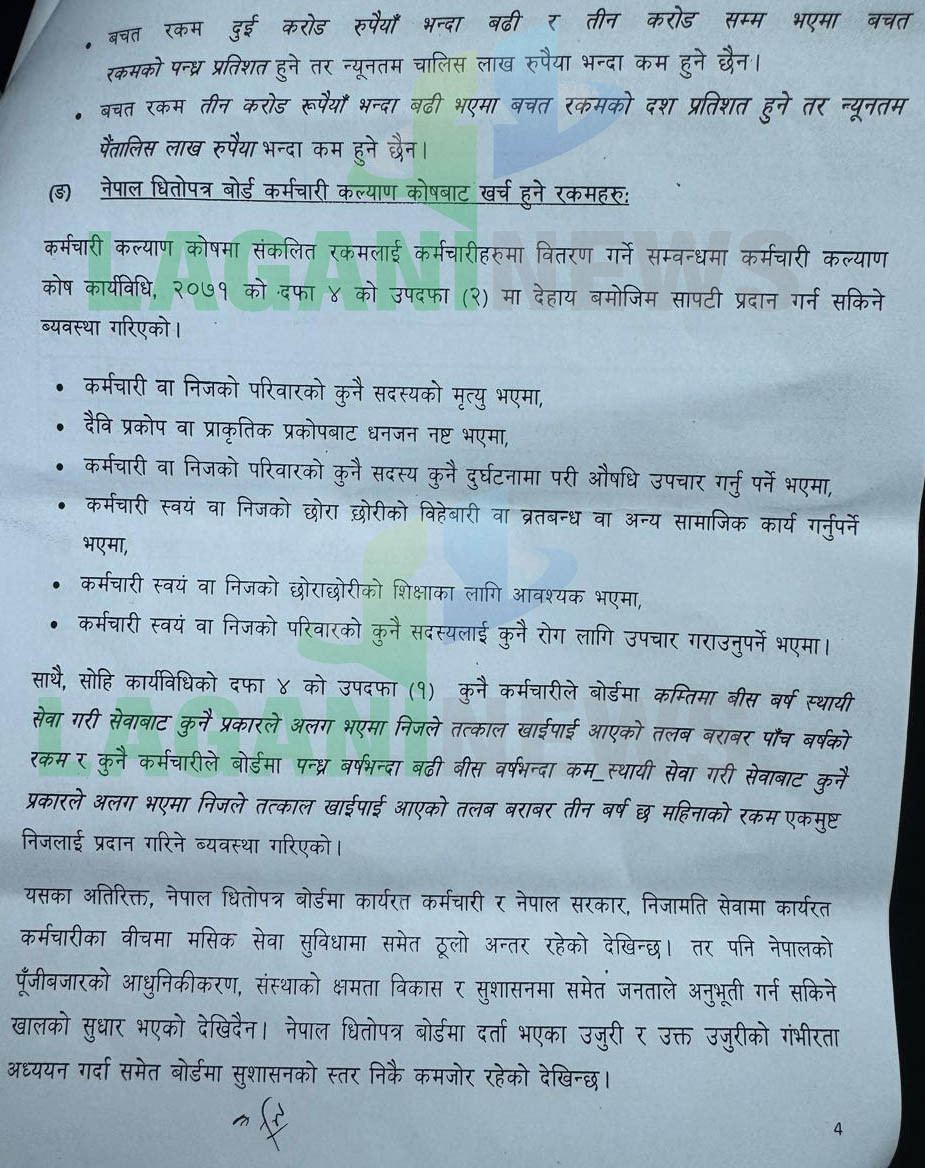 • बचत रकम दुई करोड रुपैयाँ भन्दा बढी र तीन करोड सम्म भएमा बचत
रकमको पन्ध्र प्रतिशत हुने तर न्यूनतम चालिस लाख रुपैया भन्दा कम हुने छैन।
• बचत रकम तीन करोड रूपैयाँ भन्दा बढी भएमा बचत रकमको दश प्रतिशत हुने तर न्यूनतम
पैंतालिस लाख रुपैया भन्दा कम हुने छैन।
(ङ) नेपाल धितोपत्र बोर्ड कर्मचारी कल्याण कोषबाट खर्च हुने रकमहरु:
कर्मचारी कल्याण कोषमा संकलित रकमलाई कर्मचारीहरुमा वितरण गर्ने सम्वन्धमा कर्मचारी कल्याण
कोष कार्यविधि, २०७१ को दफा ४ को उपदफा (२) मा देहाय बमोजिम सापटी प्रदान गर्न सकिने
ब्यवस्था गरिएको।
• कर्मचारी वा निजको परिवारको कुनै सदस्यको मृत्यु भएमा,
• दैवि प्रकोप वा प्राकृतिक प्रकोपबाट धनजन नष्ट भएमा,
• कर्मचारी वा निजको परिवारको कुनै सदस्य कुनै दुर्घटनामा परी औषधि उपचार गर्नु पर्ने भएमा,
• कर्मचारी स्वयं वा निजको छोरा छोरीको विहेबारी वा व्रतबन्ध वा अन्य सामाजिक कार्य गर्नुपर्ने
भएमा,
• कर्मचारी स्वयं वा निजको छोराछोरीको शिक्षाका लागि आवश्यक भएमा,
• कर्मचारी स्वयं वा निजको परिवारको कुनै सदस्यलाई कुनै रोग लागि उपचार गराउनुपर्ने भएमा।
साथै, सोहि कार्यविधिको दफा ४ को उपदफा (१) कुनै कर्मचारीले बोर्डमा कम्तिमा बीस बर्ष स्थायी
सेवा गरी सेवाबाट कुनै प्रकारले अलग भएमा निजले तत्काल खाईपाई आएको तलब बराबर पाँच बर्षको
रकम र कुनै कर्मचारीले बोर्डमा पन्ध्र वर्षभन्दा बढी बीस वर्षभन्दा कम_स्थायी सेवा गरी सेवाबाट कुनै
प्रकारले अलग भएमा निजले तत्काल खाईपाई आएको तलब बराबर तीन बर्ष छ महिनाको रकम एकमुष्ट
निजलाई प्रदान गरिने ब्यवस्था गरिएको।
यसका अतिरिक्त, नेपाल धितोपत्र बोर्डमा कार्यरत कर्मचारी र नेपाल सरकार, निजामति सेवामा कार्यरत
कर्मचारीका वीचमा मसिक सेवा सुविधामा समेत ठूलो अन्तर रहेको देखिन्छ। तर पनि नेपालको
पूँजीबजारको आधुनिकीकरण, संस्थाको क्षमता विकास र सुशासनमा समेत जनताले अनुभूती गर्न सकिने
खालको सुधार भएको देखिदैन। नेपाल धितोपत्र बोर्डमा दर्ता भएका उजुरी र उक्त उजुरीको गंभीरता
अध्ययन गर्दा समेत बोर्डमा सुशासनको स्तर निकै कमजोर रहेको देखिन्छ।
4
LAGANI NEWS
LAGANI NEWS